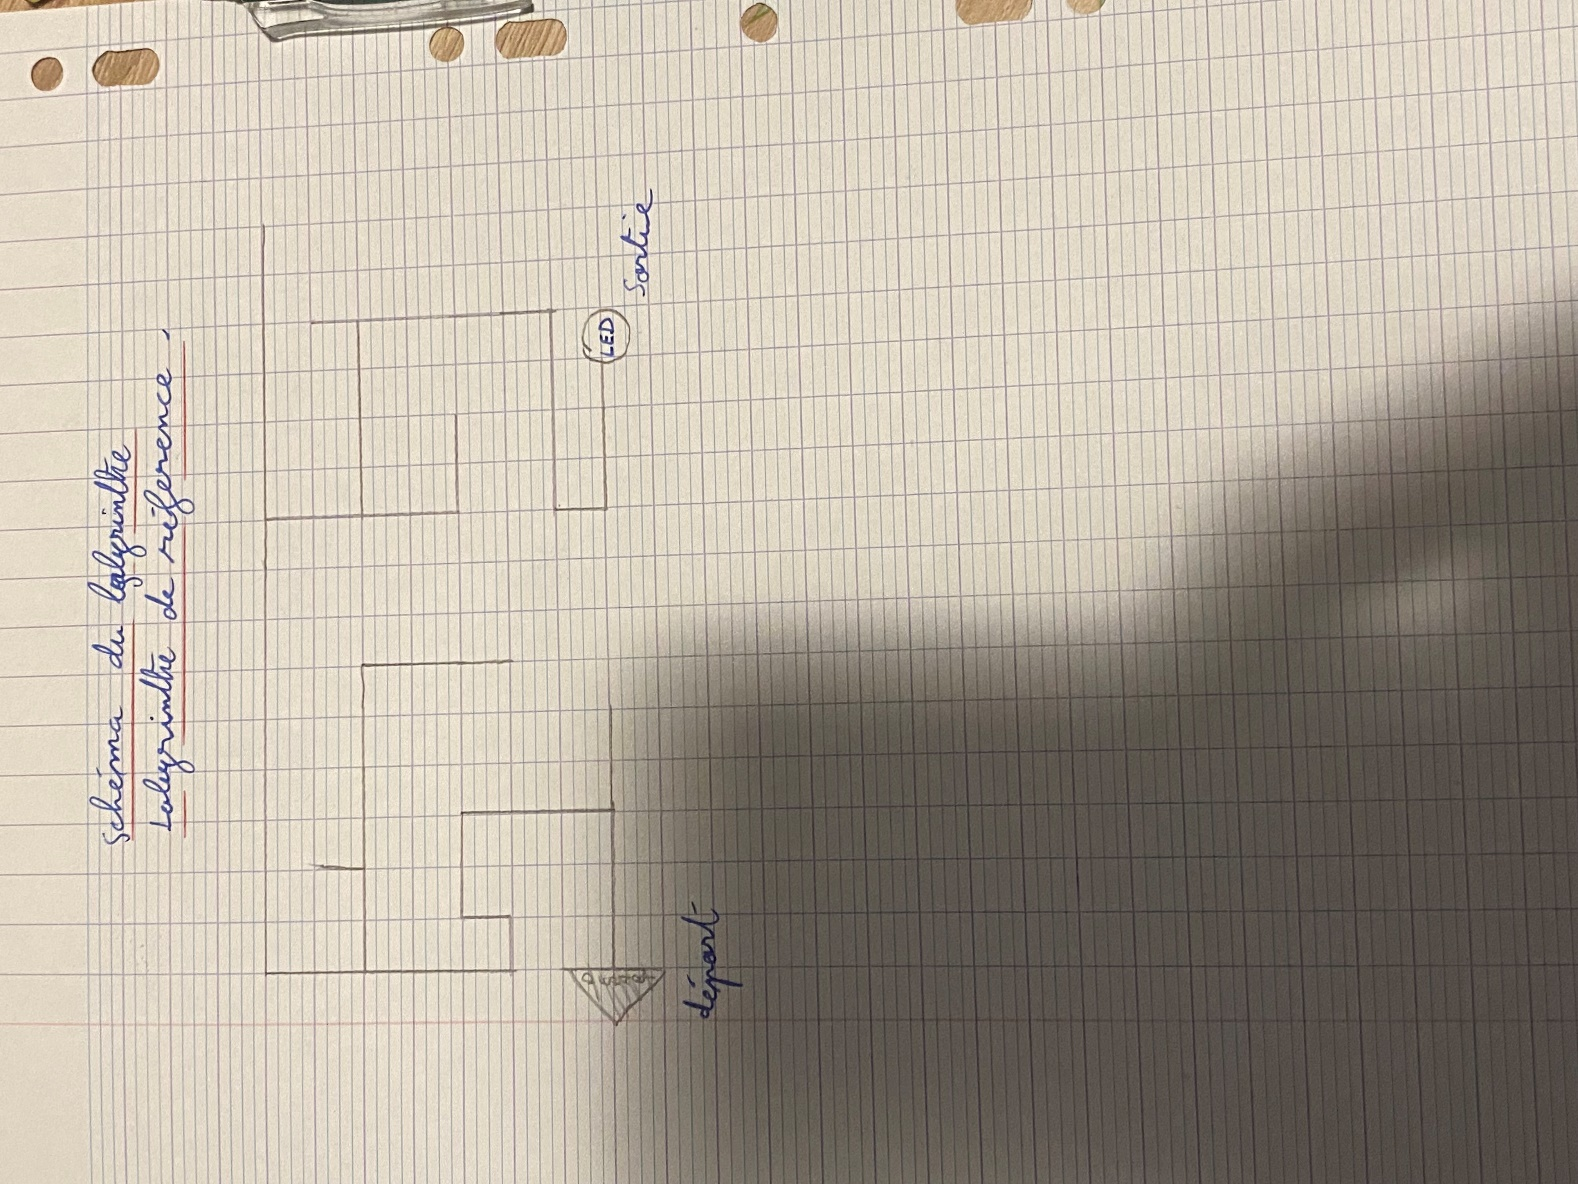 Schéma du labyrinthe
Labyrinthe de référence.
LED
Sortie
départ